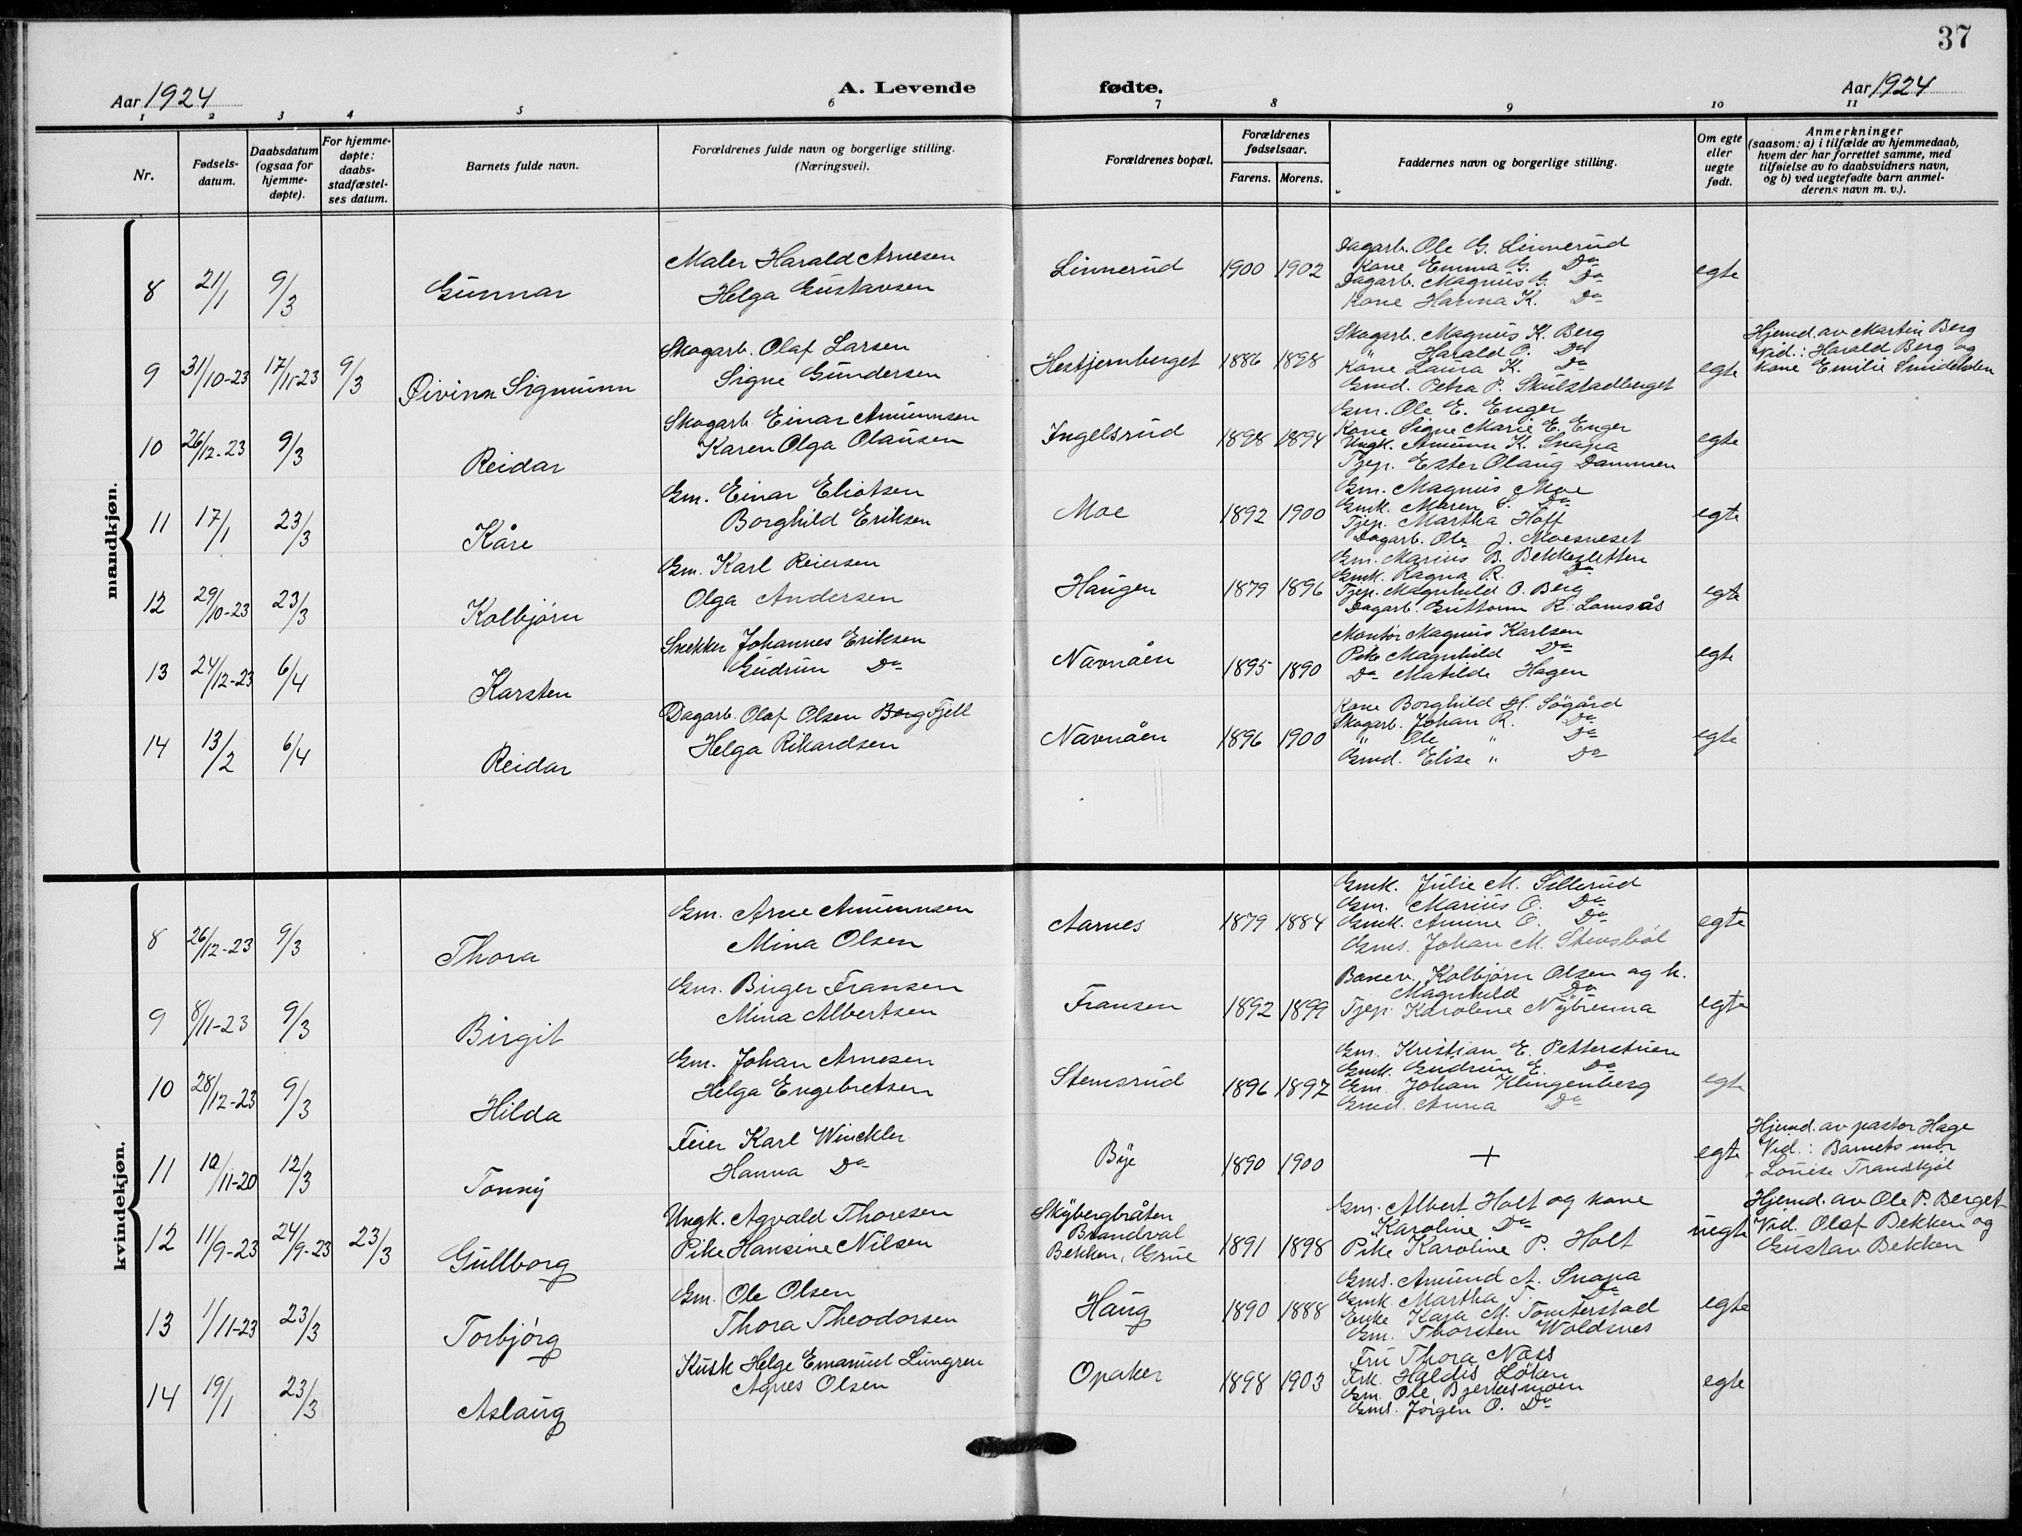 37
Aar 1924
A. Levende fødte.
Aar 1924
1 2 3 4 5 6 7 8 9 10 11
Nr.
Fødsels-datum.
Daabsdatum (ogsaa for hjemme-døpte).
For hjemme-døpte: daabs-stadfæstel-ses datum.
Barnets fulde navn.
Forældrenes fulde navn og borgerlige stilling. (Næringsvei).
Forældrenes bopæl.
Forældrenes fødselsaar.
Farens. Morens.
Faddernes navn og borgerlige stilling.
Om egte eller uegte født.
Anmerkninger (saasom: a) i tilfælde av hjemmedaab, hvem der har forrettet samme, med tilføielse av to daabsvidners navn, og b) ved uegtefødte barn anmel-derens navn m. v.).
mandkjøn.
8 21/1 9/3 Gunnar
Maler Harald Arnesen
Helga Gustavsen
Linnerud 1900 1902
Dagarb. Ole G. Linnerud
Kone Emma G. Do
Dagarb. Magnus G. Do
Kone Hanna K. Do
egte
9 31/10-23 17/11-23 9/3 Øivinn Sigmunn
Skogarb. Olaf Larsen
Signe Gundersen
Hestjernberget 1886 1898
Skogarb. Magnus K. Berg
Harald O. Do
Kone Laura K. Do
Gmd. Petra P. Skulstadberget
egte
Hjemd. av Martin Berg
Vid.: Harald Berg og
Kone Emilie Smideholen
10 26/12-23 9/3 Reidar
Skogarb Einar Amunnsen
Karen Olga Olausen
Ingelsrud 1898 1894
Gm. Ole E. Enger
Kone Signe Marie E. Enger
Ungk. Amunn K. Snapa
Tjep. Ester Olaug Dammen
egte
11 17/1 23/3 Kåre
Gm. Einar Eliotsen
Borghild Eriksen
Moe 1892 1900
Gm. Magnus Moe
Gmk. Maren S. Do
Tjep. Martha Hoff
Dagarb. Ole J. Moesneset
egte
12 29/10-23 23/3 Kolbjørn
Gm. Karl Reiersen
Olga Andersen
Haugen 1879 1896
Gm. Marius B. Bekkesletten
Gmk. Ragna R. Do
Tjep. Magnhild O. Berg
Dagarb. Guttorm K. Lomsås
egte
13 24/12-23 6/4 Karsten
Snekker Johannes Eriksen
Gudrun Do
Navnåen 1895 1890
Montør Magnus Karlsen
Pike Magnhild Do
Do Matilde Hagen
egte
14 13/2 6/4 Reidar
Dagarb. Olaf Olsen Berg Fjell
Helga Rikardsen
Navnåen 1896 1900
Kone Borghild H. Søgård
Skogarb. Johan R. Do
" Ole " Do
Gmd. Elise " Do
egte
kvindekjøn.
8 26/12-23 9/3 Thora
Gm. Arne Amunnsen
Mina Olsen
Aarnes 1879 1884
Gmk. Julie M. Sillerud
Gm. Marius O. Do
Gmk. Amine O. Do
Gms. Johan M. Stensbøl
egte
9 8/11-23 9/3 Birgit
Gm. Birger Fransen
Mina Albertsen
Fransen 1892 1899
Banev. Kolbjørn Olsen og k.
Magnhild Do
Tjep. Karoline Nybrenna
egte
10 28/12-23 9/3 Hilda
Gm. Johan Arnesen
Helga Engebretsen
Stemsrud 1896 1897
Gm. Kristian E. Petterstuen
Gmk. Gudrun E. Do
Gm. Johan Klingenberg
Gmd. Anna Do
egte
11 10/11-20 12/3 Tonny
Feier Karl Winckler
Hanna Do
Bye 1890 1900
+
egte
Hjemd. av pastor Hage
Vid.: Barnets mor
Louise Trandkjøl
12 11/9-23 24/9-23 23/3 Gullborg
Ungk. Agvald Thoresen
Pike Hansine Nilsen
Skybergbråten
Brandval
Bekken, Grue 1891 1898
Gm. Albert Holt og kone
Karoline Do
Pike Karoline P. Holt
uegte
Hjemd. av Ole P. Berget
Vid. Olaf Bekken og
Gustav Bekken
13 1/11-23 23/3 Torbjørg
Gm. Ole Olsen
Thora Theodorsen
Haug 1890 1888
Gms. Amund A. Snapa
Gmk. Martha T. Do
Enke Kaja M. Tomterstad
Gm. Thorsten Woldsnes
egte
14 19/1 23/3 Aslaug
Kusk Helge Emanuel Lungren
Agnes Olsen
Opaker 1898 1903
Fru Thora Næss
Frk. Haldis Løken
Gm. Ole Bjerkesmoen
Gms. Jørgen O. Do
egte